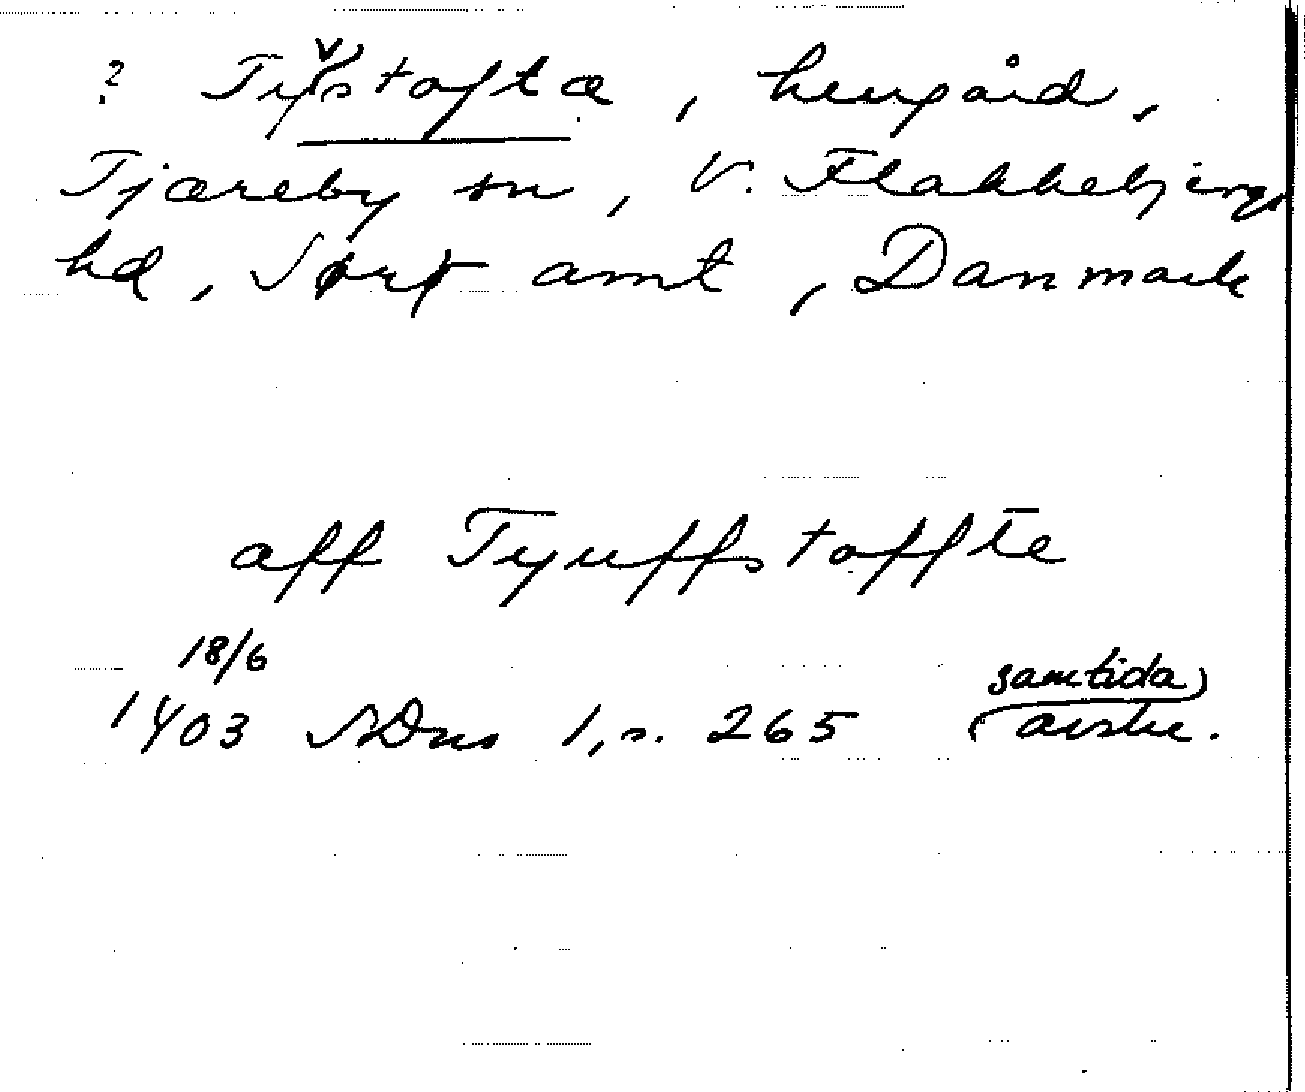 ? Tystofta, herrgård,
Tjæreby sn, V. Flakkebjergs
hd, Sorø amt, Danmark
aff Tyuffstoffte
18/6
1403 SDns 1, s. 265 (samtida)
avskr.